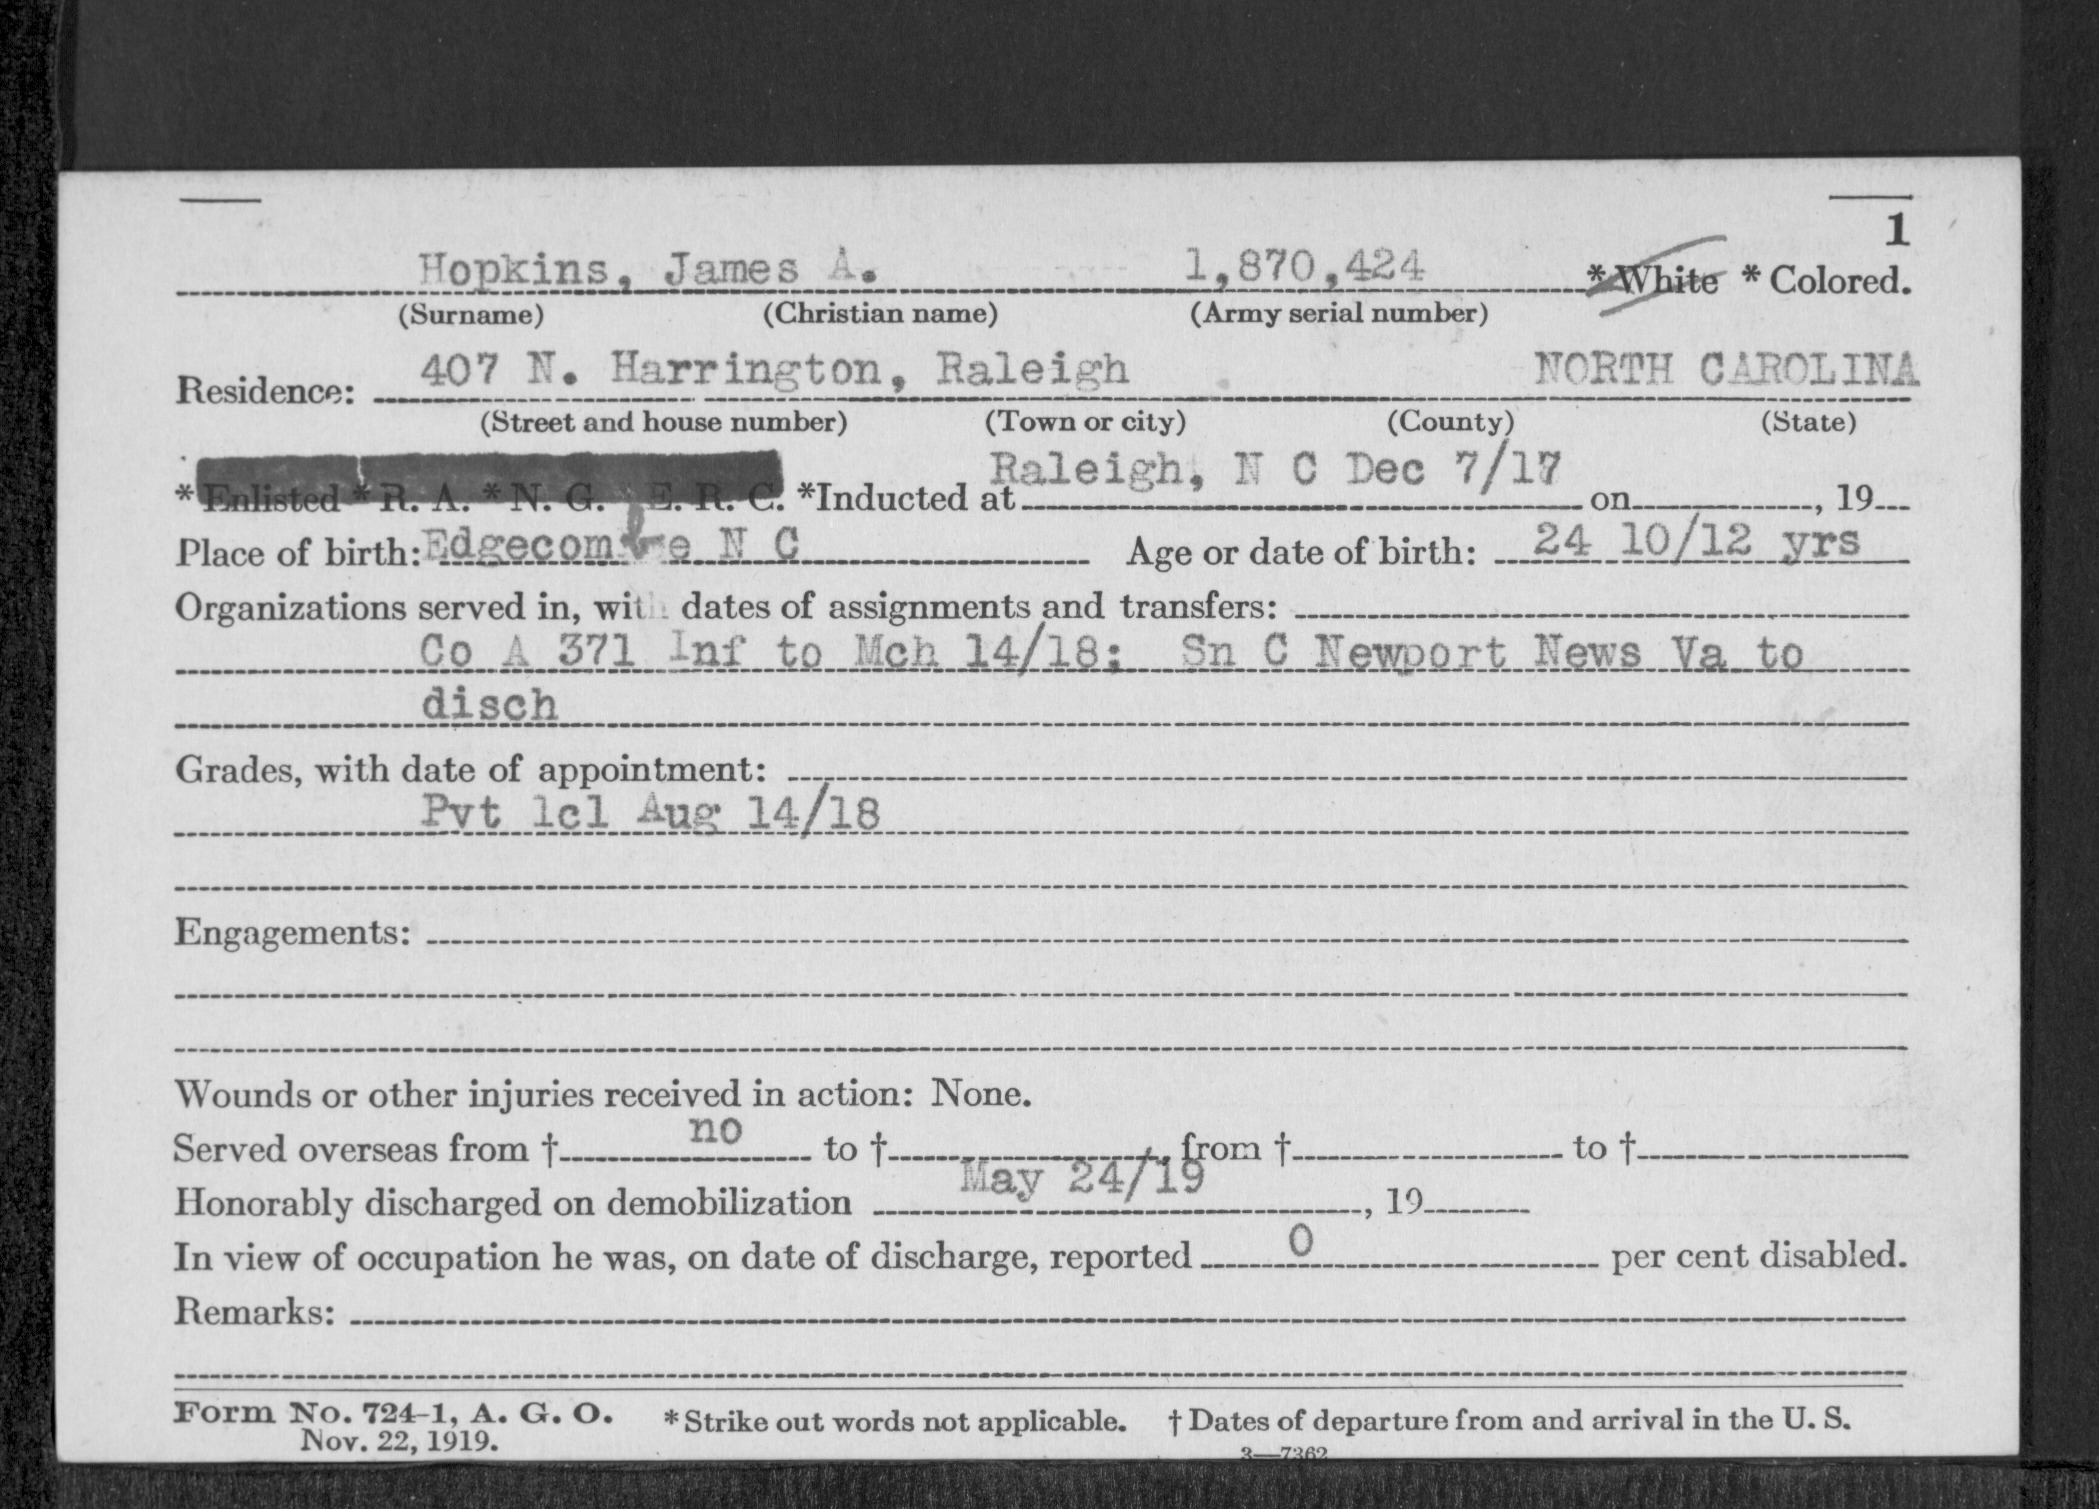 1
Hopkins, James A. 1,870,424 *White * Colored.
(Surname) (Christian name) (Army serial number)
Residence: 407 N. Harrington, Raleigh NORTH CAROLINA
(Street and house number) (Town or city) (County) (State)
*Enlisted *R. A. *N. G. E. R. C. *Inducted at Raleigh, N C Dec 7/17 on , 19
Place of birth: Edgecombe N C Age or date of birth: 24 10/12 yrs
Organizations served in, with dates of assignments and transfers:
Co A 371 Inf to Mch 14/18; Sn C Newport News Va to
disch
Grades, with date of appointment:
Pvt 1cl Aug 14/18
Engagements:
Wounds or other injuries received in action: None.
Served overseas from † no to † , from † to †
Honorably discharged on demobilization May 24/19 , 19
In view of occupation he was, on date of discharge, reported 0 per cent disabled.
Remarks:
Form No. 724-1, A. G. O. *Strike out words not applicable. † Dates of departure from and arrival in the U. S.
Nov. 22, 1919.
3—7362